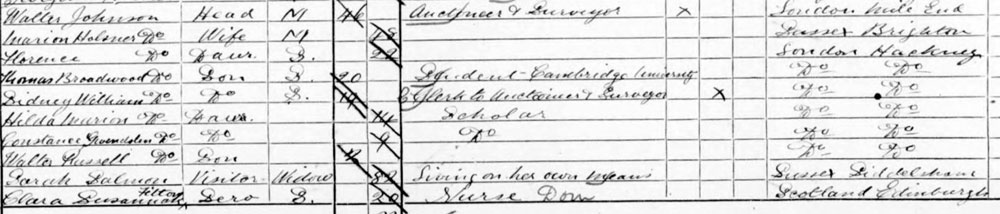 Walter Johnson Head M 46 Auctioneer & Surveyor X London Mile End
Marion Holsner Do Wife M 48 Sussex Brighton
Florence Do Daur. S. London Hackney
Thomas Broadwood Do Son S. 20 Student-Cambridge University Do Do
Sidney William Do Do S. 19 Clerk to Auctioneer & Surveyor X Do Do
Hilda Marion Do Daur. 14 Scholar Do Do
Constance Gwendolen Do Do 9 Do Do Do
Walter Russell Do Son Do Do
Sarah Salmon Visitor Widow Living on her own means Sussex Siddlesham
Clara Susannah Serv S. 20 Nurse Dom Scotland Edinburgh